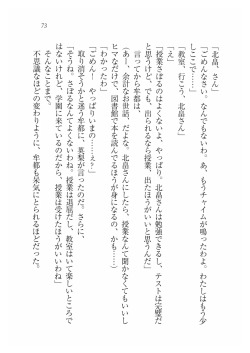 73
「北畠、さん」
「ごめんなさい、なんでもないわ。あ、もうチャイムが鳴ったわよ。わたしはもう少
しここで……」
「教室、行こう、北畠さん」
「え」
「授業さぼるのはよくないよ、やっぱり。北畠さんは勉強できるし、テストは完璧だ
と思うけど、でも、出られるなら授業、出たほうがいいと思うんだ」
言ってから卑都は、
（あー、余計なお世話、だよな。北畠さんにしたら、授業なんて聞かなくてもいいし
ヒマなだけで、図書館で本を読んでるほうが身になるの、かも……）
「わかったわ」
「ごめん！　やっぱりいまの……え？」
取り消そうかと迷う卑都に、英梨が言ったのだ。さらに、
「そうね。さぼるなんてよくないわね。授業は退屈だし、教室はいて楽しいところで
はないけれど、学園に来ているのだから、授業は受けたほうがいいわね」
そんなことまで。
不思議なほどの変わりように、卑都も呆気にとられるほどだった。